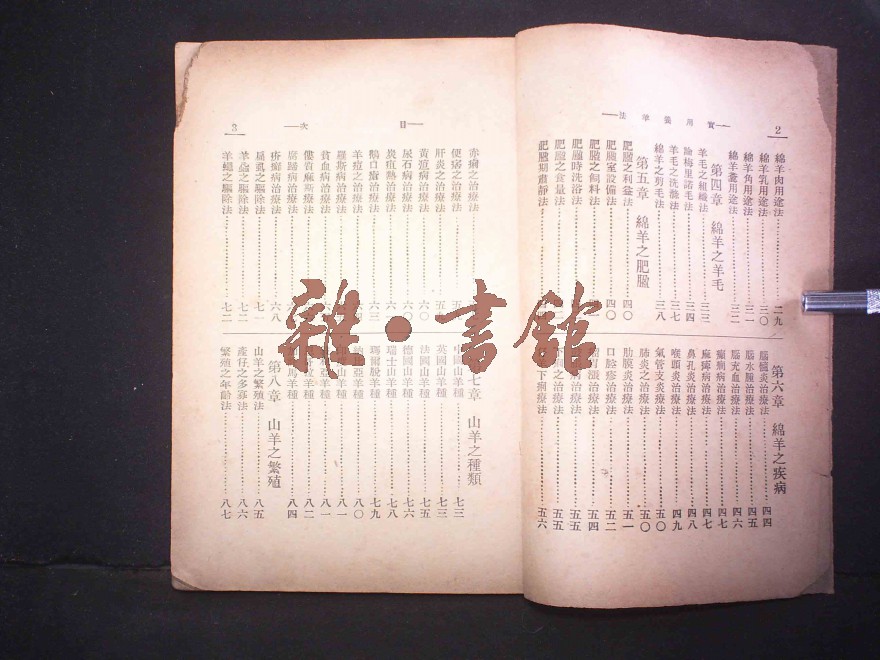 2
實用養羊法
綿羊肉用途法 二九
綿羊乳用途法 三〇
綿羊角用途法 三一
綿羊糞用途法 三二
第四章 綿羊之羊毛
羊毛之組織法 三三
論梅里諾毛法 三四
羊毛之洗滌法 三七
綿羊之剪毛法 三八
第五章 綿羊之肥臘
肥臘之利益法 四〇
肥臘室設備法 四〇
肥臘之飼料法
肥臘時洗浴法
肥臘之食量法
肥臘期肅靜法
第六章 綿羊之疾病
腦髓炎治療法 四四
腦水腫治療法 四五
腦充血治療法 四六
癲癇病治療法 四七
麻痺病治療法 四七
鼻孔炎治療法 四八
喉頭炎治療法 四九
氣管支炎療法 五〇
肺炎之治療法 五〇
肋膜炎治療法 五一
口腔疹治療法 五二
治療法 五四
治療法 五五
治療法 五五
下痢療法 五六
目次
3
赤痢之治療法
便祕之治療法
肝炎之治療法 五
黃疸病治療法 六〇
尿石病治療法 六〇
炭疽熱治療法 六二
鵝口瘡治療法 六三
羊痘之治療法
羅斯病治療法
貧血病治療法
僂質麻斯療法
腐蹄病治療法
疥癬病治療法 六八
扁虱之驅除法 七一
羊蝨之驅除法 七二
羊蠅之驅除法 七二
七章 山羊之種類
中國山羊種 七三
英國山羊種 七三
法國山羊種 七五
德國山羊種 七六
瑞士山羊種 七八
瑪爾脫羊種 七九
亞羊種 八〇
羊種 八一
羊種 八一
羊種 八二
羊種 八四
第八章 山羊之繁殖
山羊之繁殖法 八五
產仔之多寡法 八六
繁殖之年齡法 八七
雜·書館